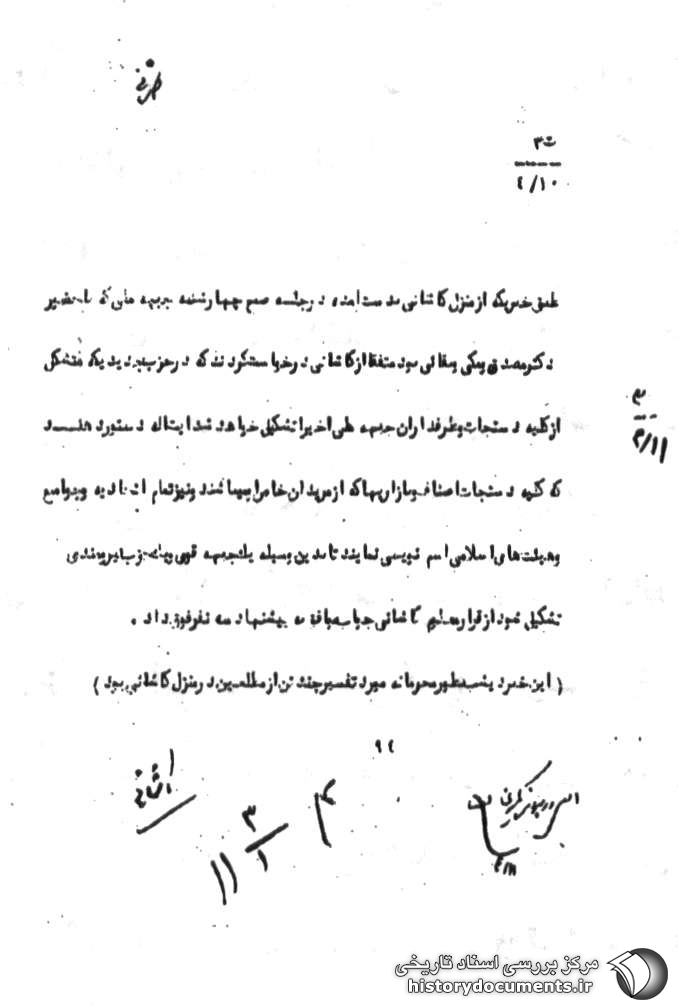 ت۳
۴/۱۰
طبق خبریکه از منزل کاشانی بدست آمده در جلسه صبح چهارشنبه جبهه ملی که با حضیر
دکتر مصدق و مکی و بقائی بود متفقا از کاشانی درخواست کردند که در حزب جدیدیکه متشکل
از کلیه دستجات و طرفداران جبهه ملی اخیرا تشکیل خواهد شد ایشاله دستور دهند
که کلیه دستجات اصناف و بازاریها که از مریدان خاص ایشان میباشند و نیز تمام اتحادیه و جوامع
و هیئت های اسلامی اسم نویسی نمایند تا بدین وسیله یکجبهه قوی و یا حزب نیرومندی
تشکیل شود از قرار معلوم کاشانی جواب موافق به پیشنهاد سه نفر فوق داد .
( این خبر دیشب بطور محرمانه مورد تفسیر چند تن از مطلعین در منزل کاشانی بود )
۹۴
کاشانی
۳
۱
۱۱
۴/۱۱
مرکز بررسی اسناد تاریخی
historydocuments.ir